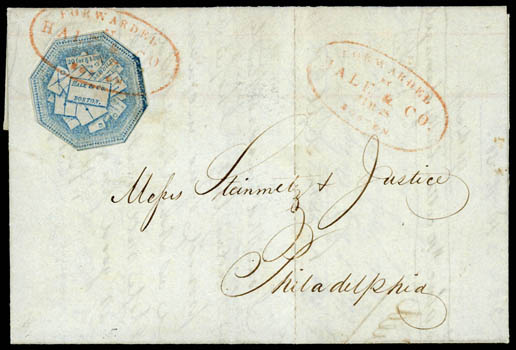 FORWARDED
HALE & CO.
HALE & Co.
BOSTON.
FORWARDED
BY
HALE & CO.
FROM
BOSTON
Messrs Steinmetz & Justice
Philadelphia